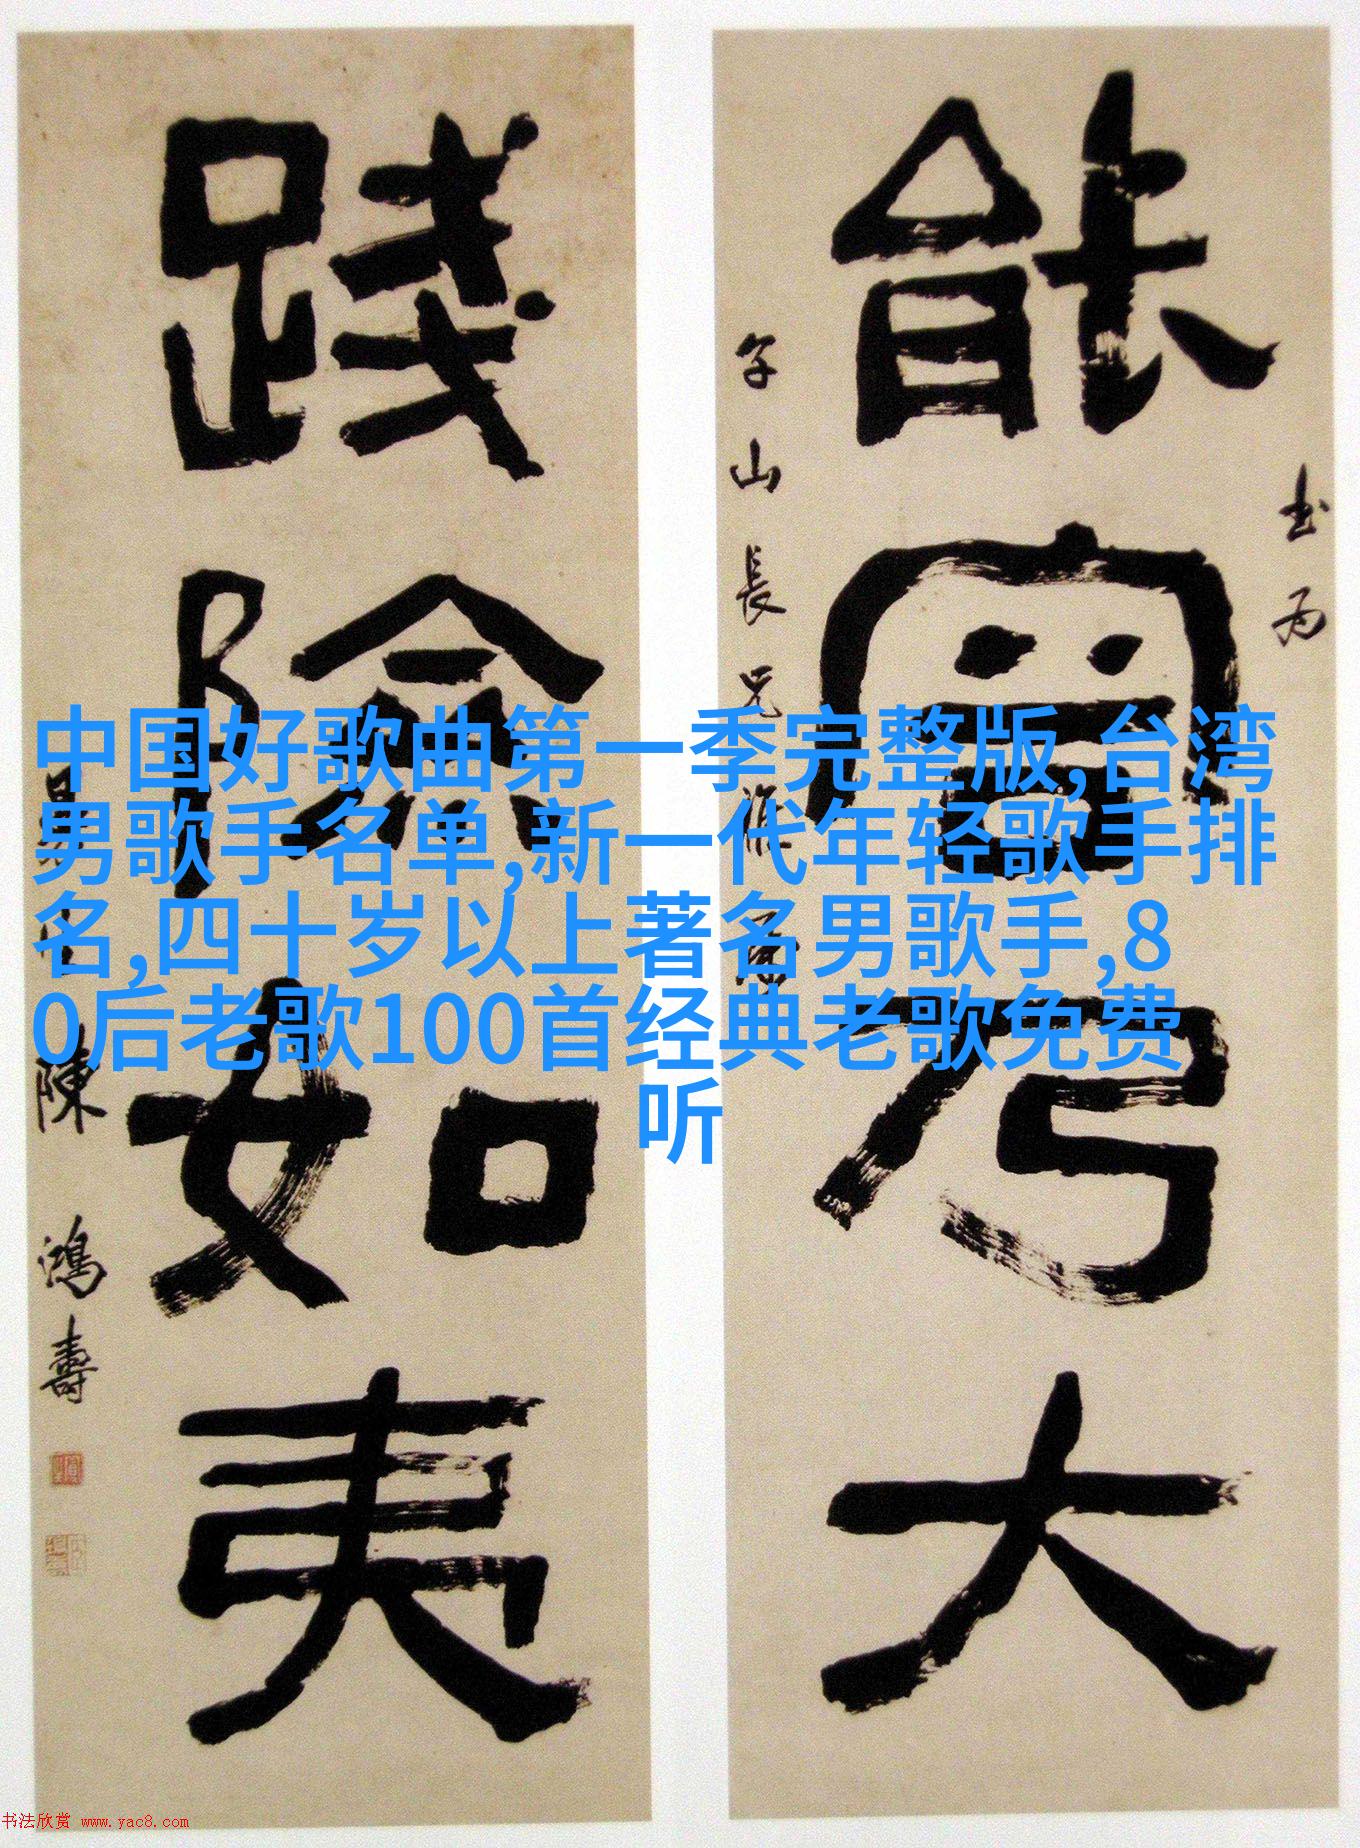 能富乃大
書為
午山長兄雅屬
踐險如夷
陳鴻壽
中国好歌曲第一季完整版,台湾
男歌手名单,新一代年轻歌手排
名,四十岁以上著名男歌手,8
0后老歌100首经典老歌免费
听
书法欣赏 www.yac8.com